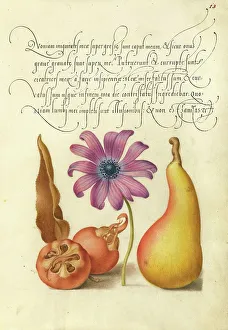 Quoniam iniquitates meae supergressae sunt caput meum, & sicut onus
grave gravatae sunt super me. Putruerunt & corruptae sunt
cicatrices meae a facie insipientiae meae. Miser factus sum & cur-
vatus sum usque in finem tota die contristatus ingrediebar. Quo-
niam lumbi mei impleti sunt illusionibus: & non est sanitas